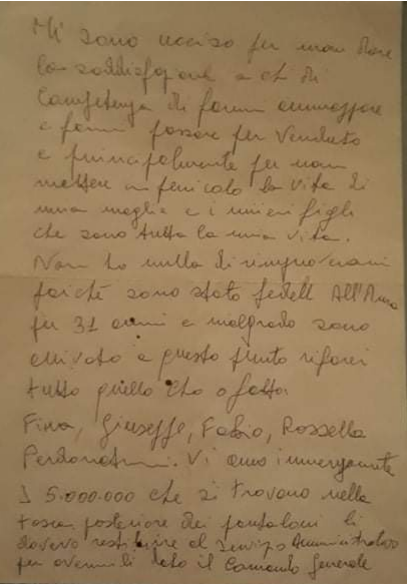 Mi sono ucciso per non dare
la soddisfazione a chi di
Competenza di farmi ammazzare
e farmi passare per Venduto
e principalmente per non
mettere in pericolo la vita di
mia moglie e i miei figli
che sono tutta la mia vita.
Non ho nulla di rimproverarmi
poiché sono stato fedele All'Arma
per 31 anni e malgrado sono
arrivato a questo punto rifarei
tutto quello che o fatto.
Fina, Giuseppe, Fabio, Rossella
Perdonatemi. Vi amo immensamente
£ 5.000.000 che si trovano nella
tasca posteriore dei pantaloni li
dovevo restituire al Servizio Amministrativo
per avermeli dato il Comando Generale